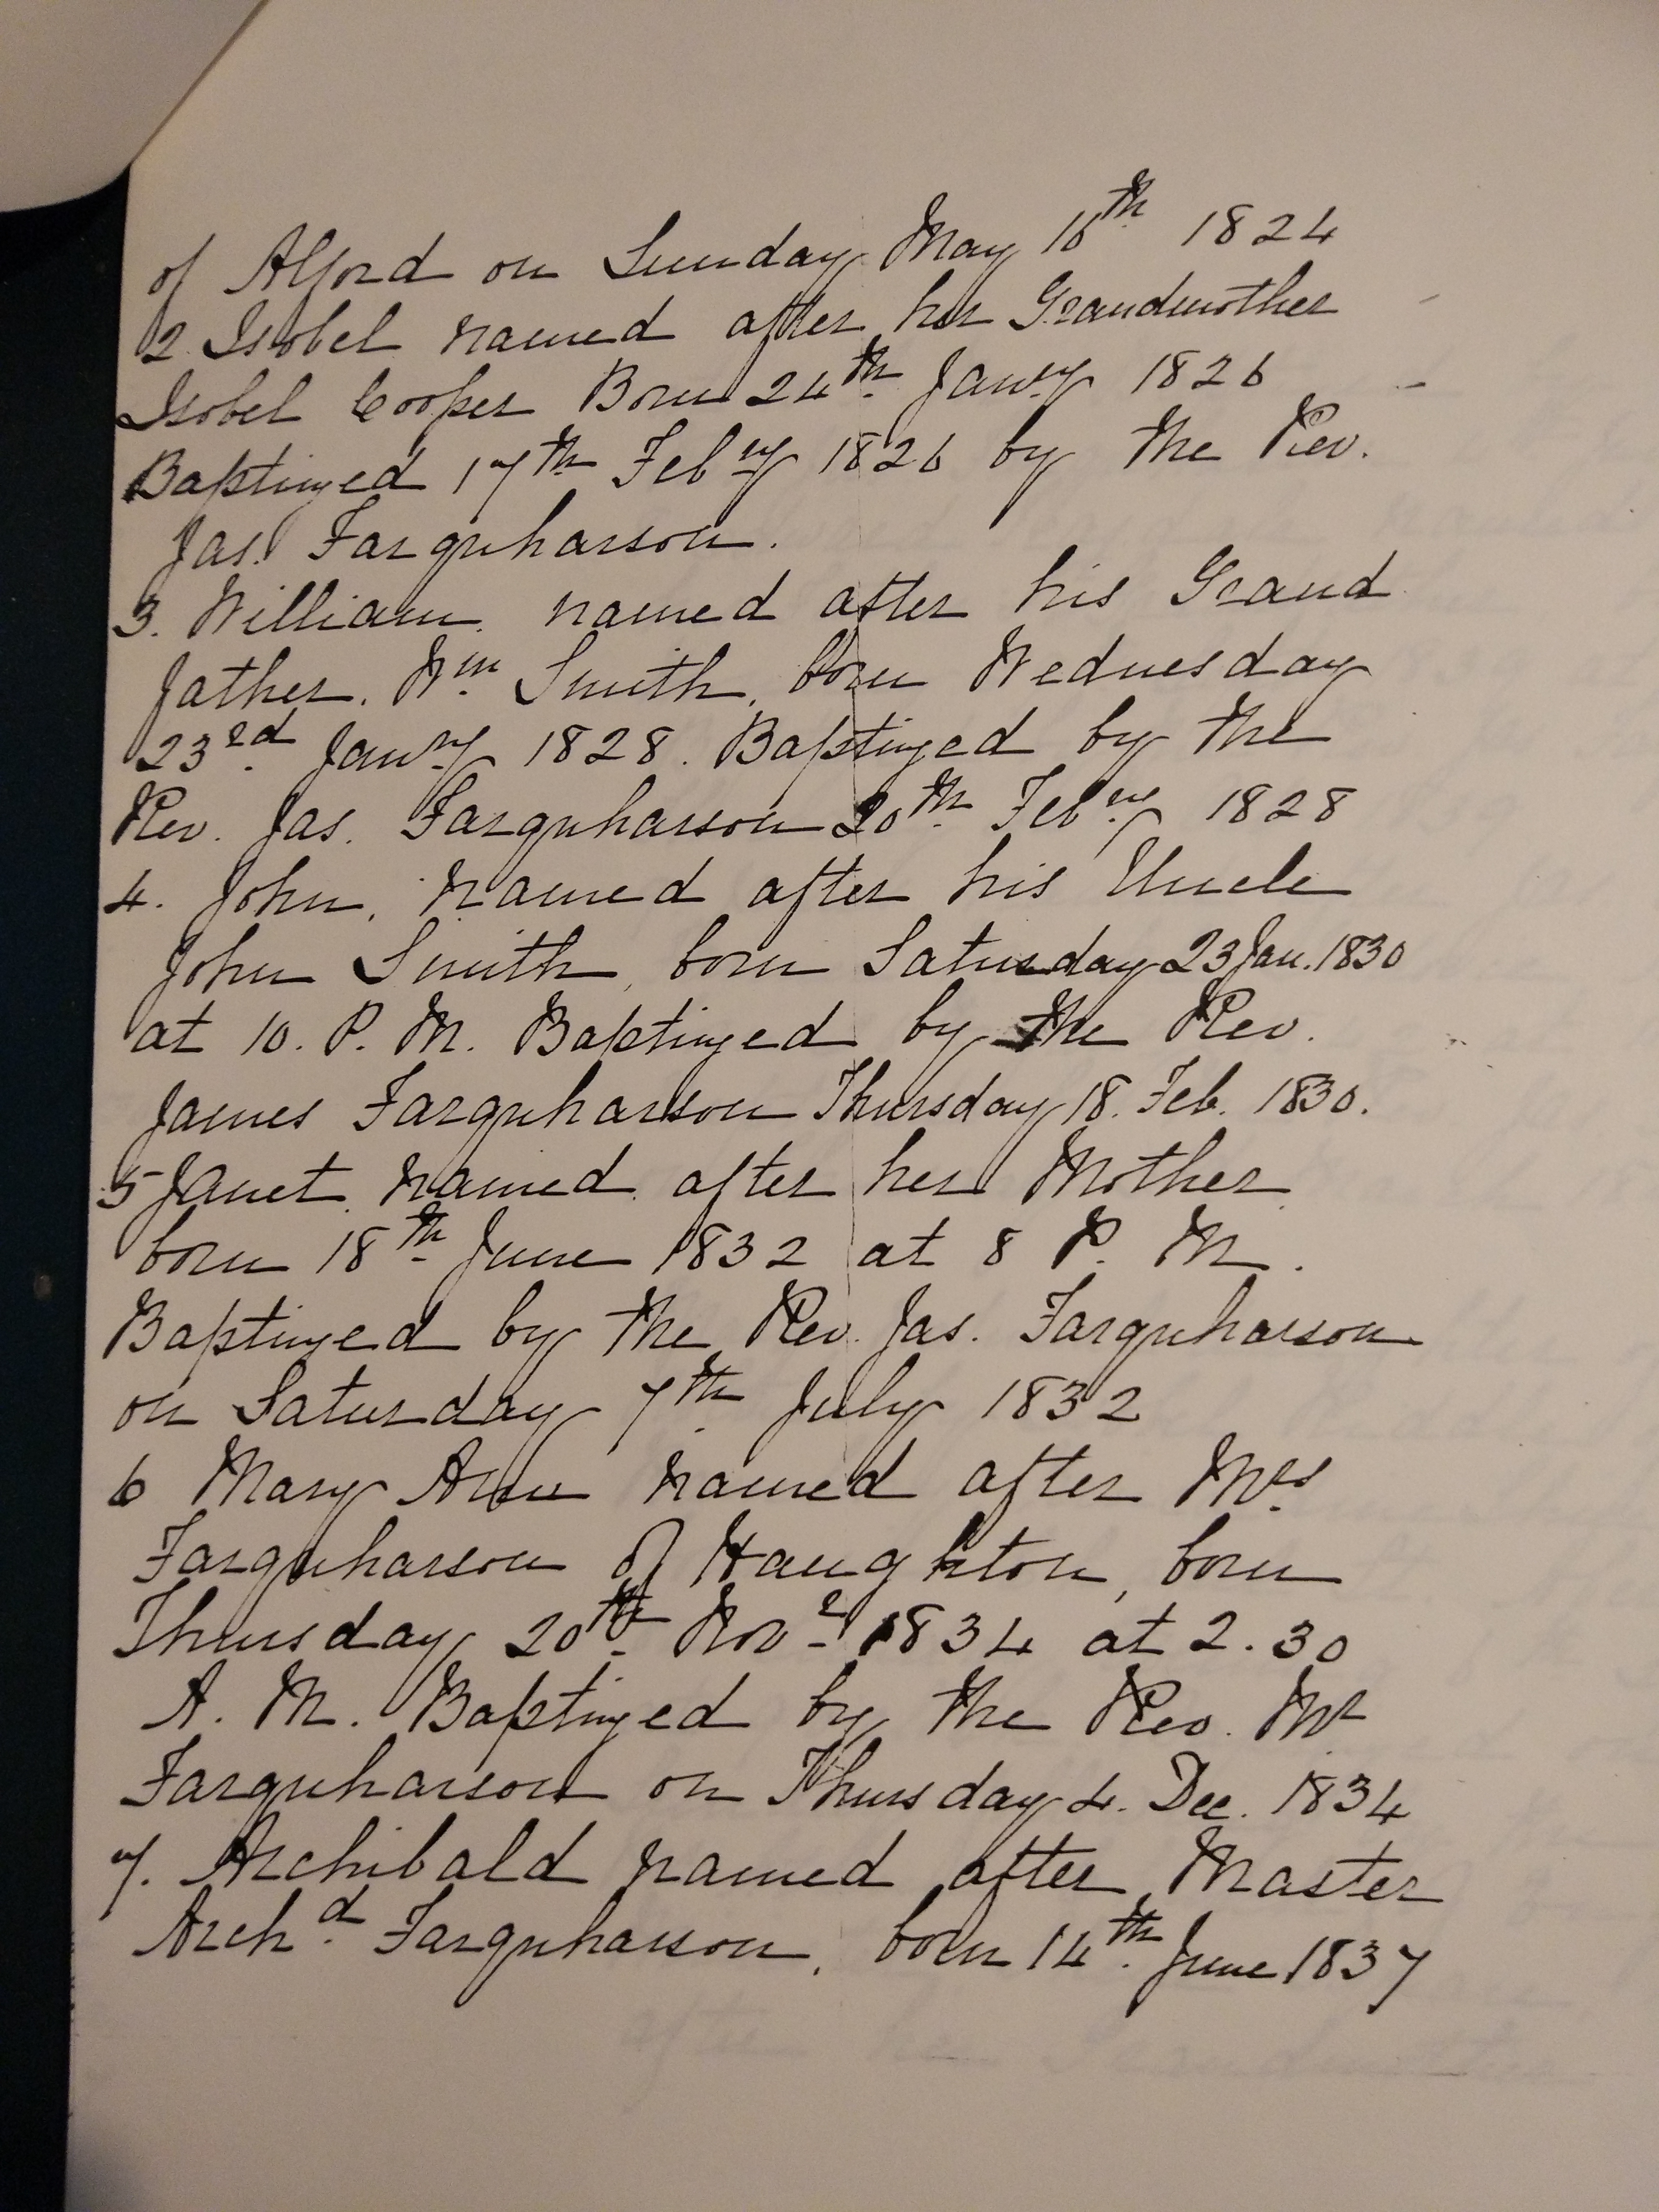 of Alford on Sunday May 16th 1824
2 Isobel named after her Grandmother
Isobel Cooper Born 24th Janry 1826
Baptized 17th Febry 1826 by the Rev.
Jas. Farquharson.
3. William, named after his Grand
father. Wm Smith, born Wednesday
23rd Janry 1828. Baptized by the
Rev. Jas. Farquharson 20th Febry 1828
4. John, named after his Uncle
John Smith, born Saturday 23 Jan. 1830
at 10. P. M. Baptized by the Rev.
James Farquharson Thursday 18. Feb. 1830.
5 Janet named after her Mother
born 18th June 1832 at 8 P. M.
Baptized by the Rev. Jas. Farquharson
on Saturday 7th July 1832
6 Mary Ann named after Mrs
Farquharson of Haughton, born
Thursday 20th Novr 1834 at 2.30
A. M. Baptized by the Rev. Mr
Farquharson on Thursday 4. Dec. 1834
7. Archibald named after Master
Archd Farquharson, born 14th June 1837